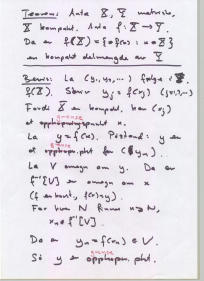 Teorem: Anta X, Y metriske,
X kompakt. Anta f: X → Y.
Da er f(X) = {f(x) : x ∈ X}
en kompakt delmengde av Y
Bevis: La (y₁, y₂, ...) følge i
f(X). Skriv y_j = f(x_j) (j=1,2,...)
Fordi X er kompakt, har (x_j)
et opphopningspunkt x.
La y = f(x). Påstand: y er
et opphopn.pkt for (y_n).
La V omegn om y. Da er
f⁻¹[V] er omegn om x
(f er kont., f(x)=y).
For hver N finnes n ≥ N,
x_n ∈ f⁻¹[V].
Da er y_n = f(x_n) ∈ V.
Så y er opphopn. pkt.